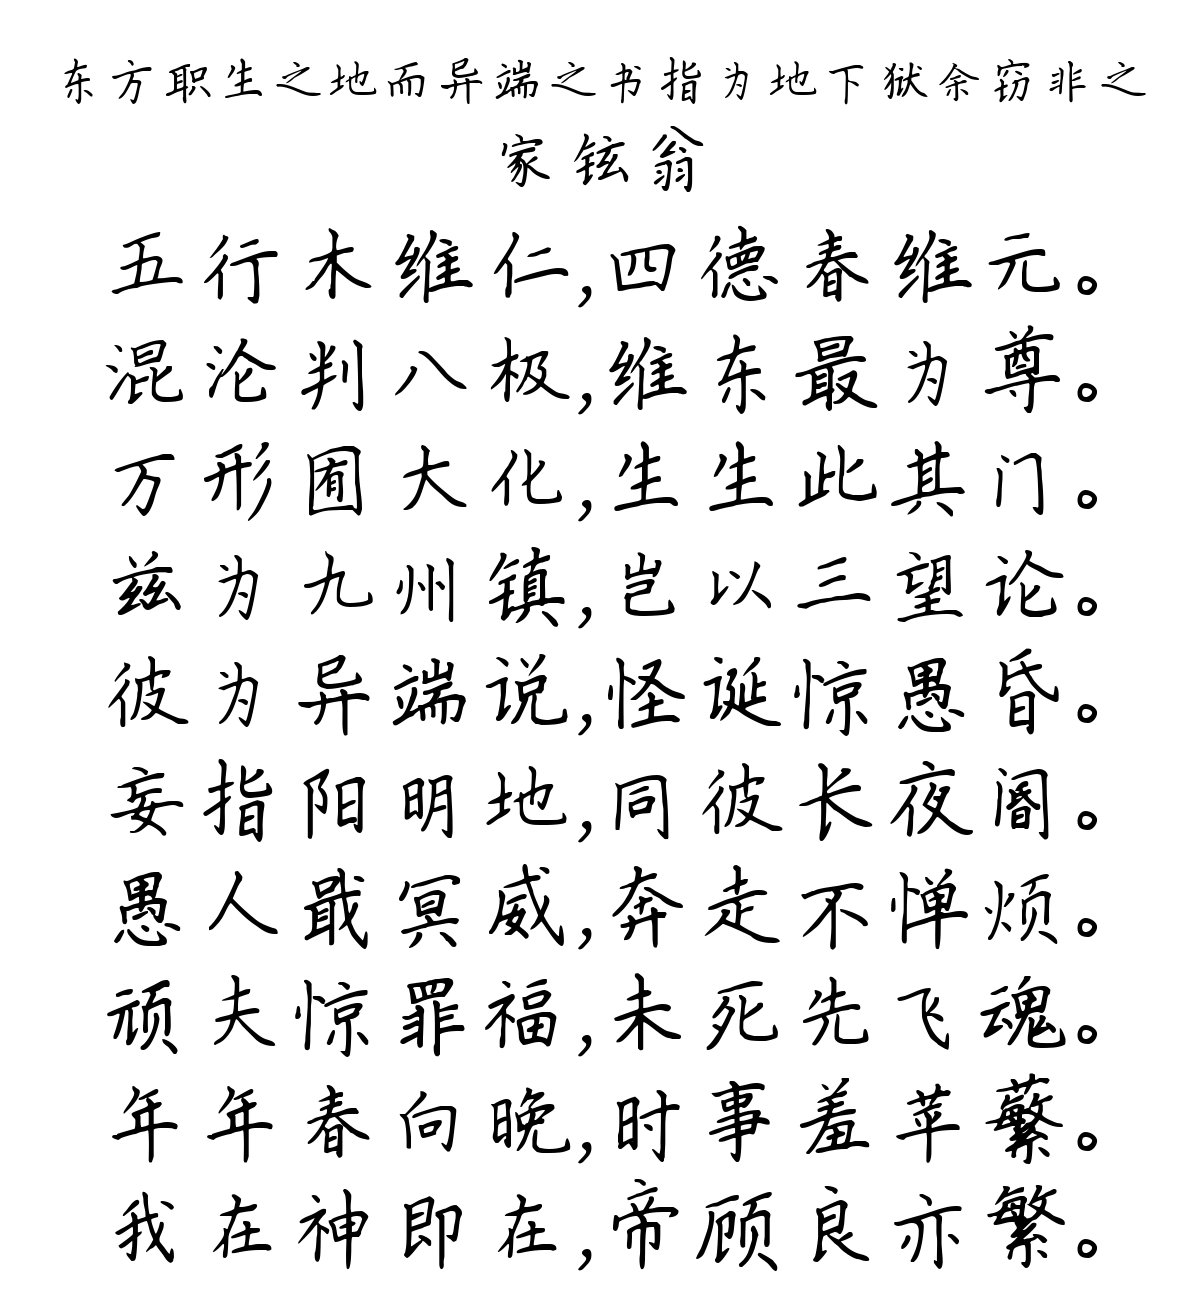 东方职生之地而异端之书指为地下狱余窃非之
家铉翁
五行木维仁,四德春维元。
混沦判八极,维东最为尊。
万形囿大化,生生此其门。
兹为九州镇,岂以三望论。
彼为异端说,怪诞惊愚昏。
妄指阳明地,同彼长夜阍。
愚人戢冥威,奔走不惮烦。
顽夫惊罪福,未死先飞魂。
年年春向晚,时事羞苹蘩。
我在神即在,帝顾良亦繁。